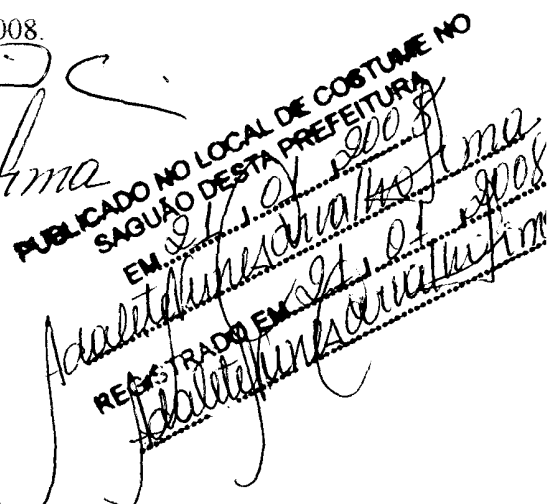 008.
lima
PUBLICADO NO LOCAL DE COSTUME NO
SAGUÃO DESTA PREFEITURA
EM 21, 01, 2008
Adalete Nunes Carvalho Lima
REGISTRADO EM 21, 01, 2008
Adalete Nunes Carvalho Lim